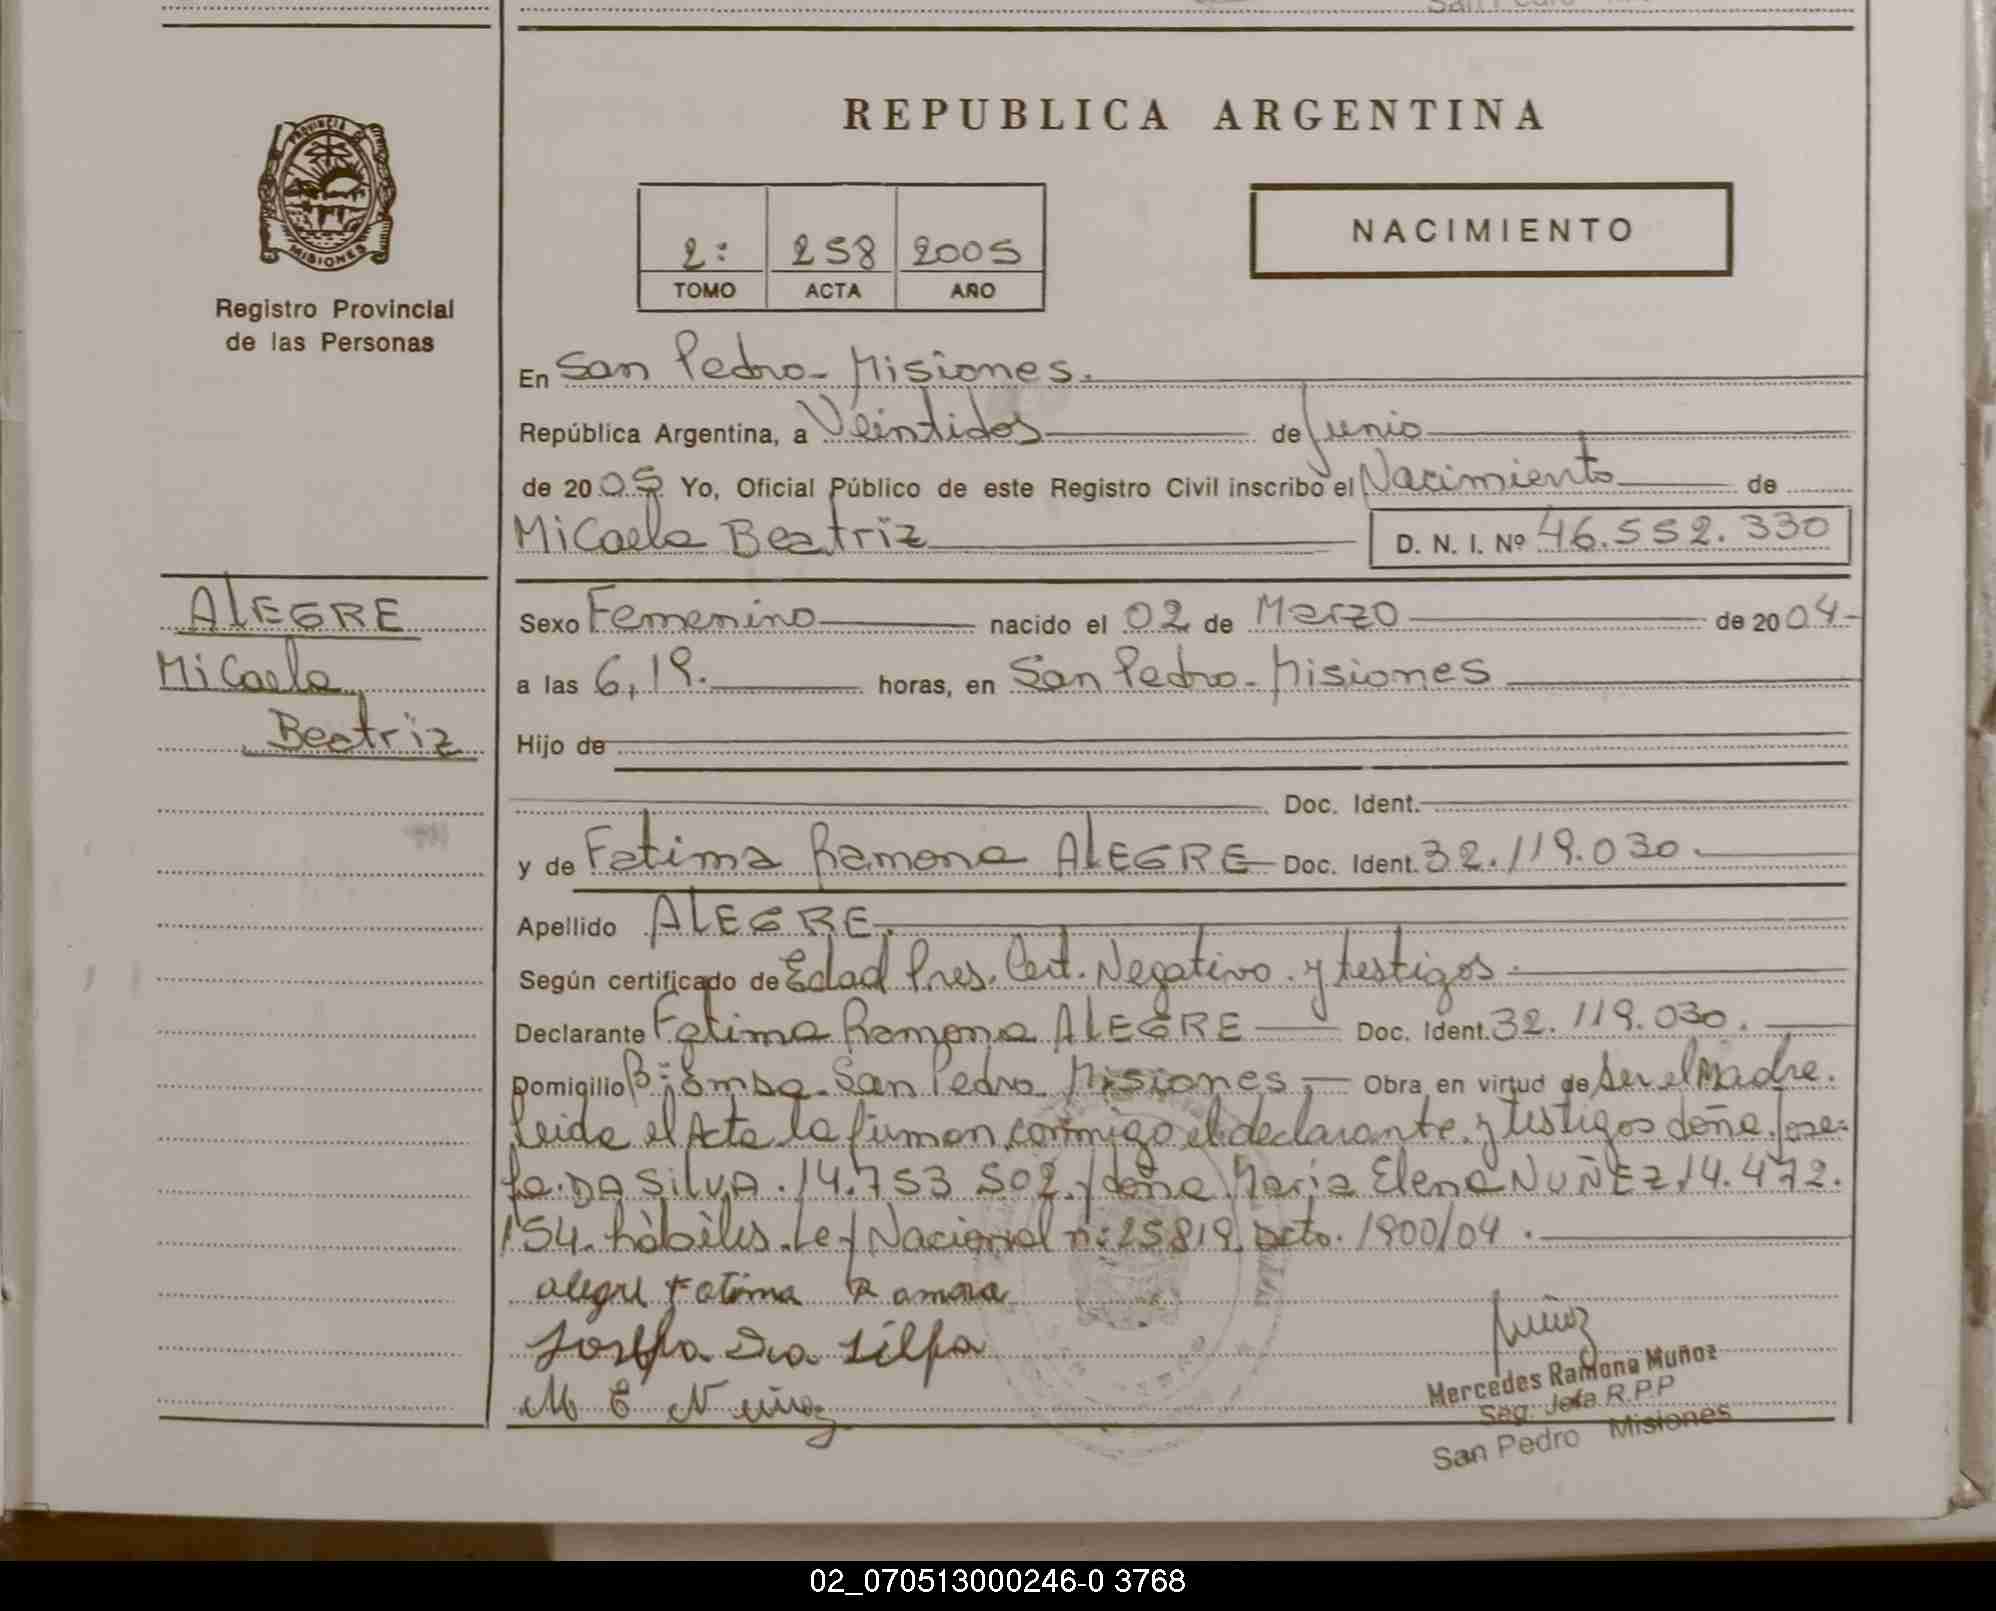 REPUBLICA ARGENTINA
PROVINCIA DE
MISIONES
Registro Provincial
de las Personas
2: 258 2005
TOMO ACTA AÑO
NACIMIENTO
En San Pedro - Misiones.
República Argentina, a Veintidos de Junio
de 2005 Yo, Oficial Público de este Registro Civil inscribo el Nacimiento de
Micaela Beatriz D. N. I. Nº 46.552.330
ALEGRE
Micaela
Beatriz
Sexo Femenino nacido el 02 de Marzo de 2004-
a las 6,19. horas, en San Pedro - Misiones
Hijo de
Doc. Ident.
y de Fatima Ramona ALEGRE Doc. Ident. 32.119.030.
Apellido ALEGRE.
Según certificado de Edad Pres. Cert. Negativo. y testigos.
Declarante Fatima Ramona ALEGRE Doc. Ident. 32.119.030.
Domicilio San Pedro Misiones, Obra en virtud de ser el Madre.
leida el Acta la firman conmigo el declarante. y testigos doña Jose-
fa. DA SILVA. 14.753 502. y doña Maria Elena NUÑEZ 14.472.
154. hàbiles. Ley Nacional nº: 25819. Dcto. 1900/04.
Alegre Fatima Ramona
Josefa Da Silfa
M E Nuñez
Muñoz
Mercedes Ramona Muñoz
Seg. Jefa R.P.P
San Pedro Misiones
02_070513000246-0 3768